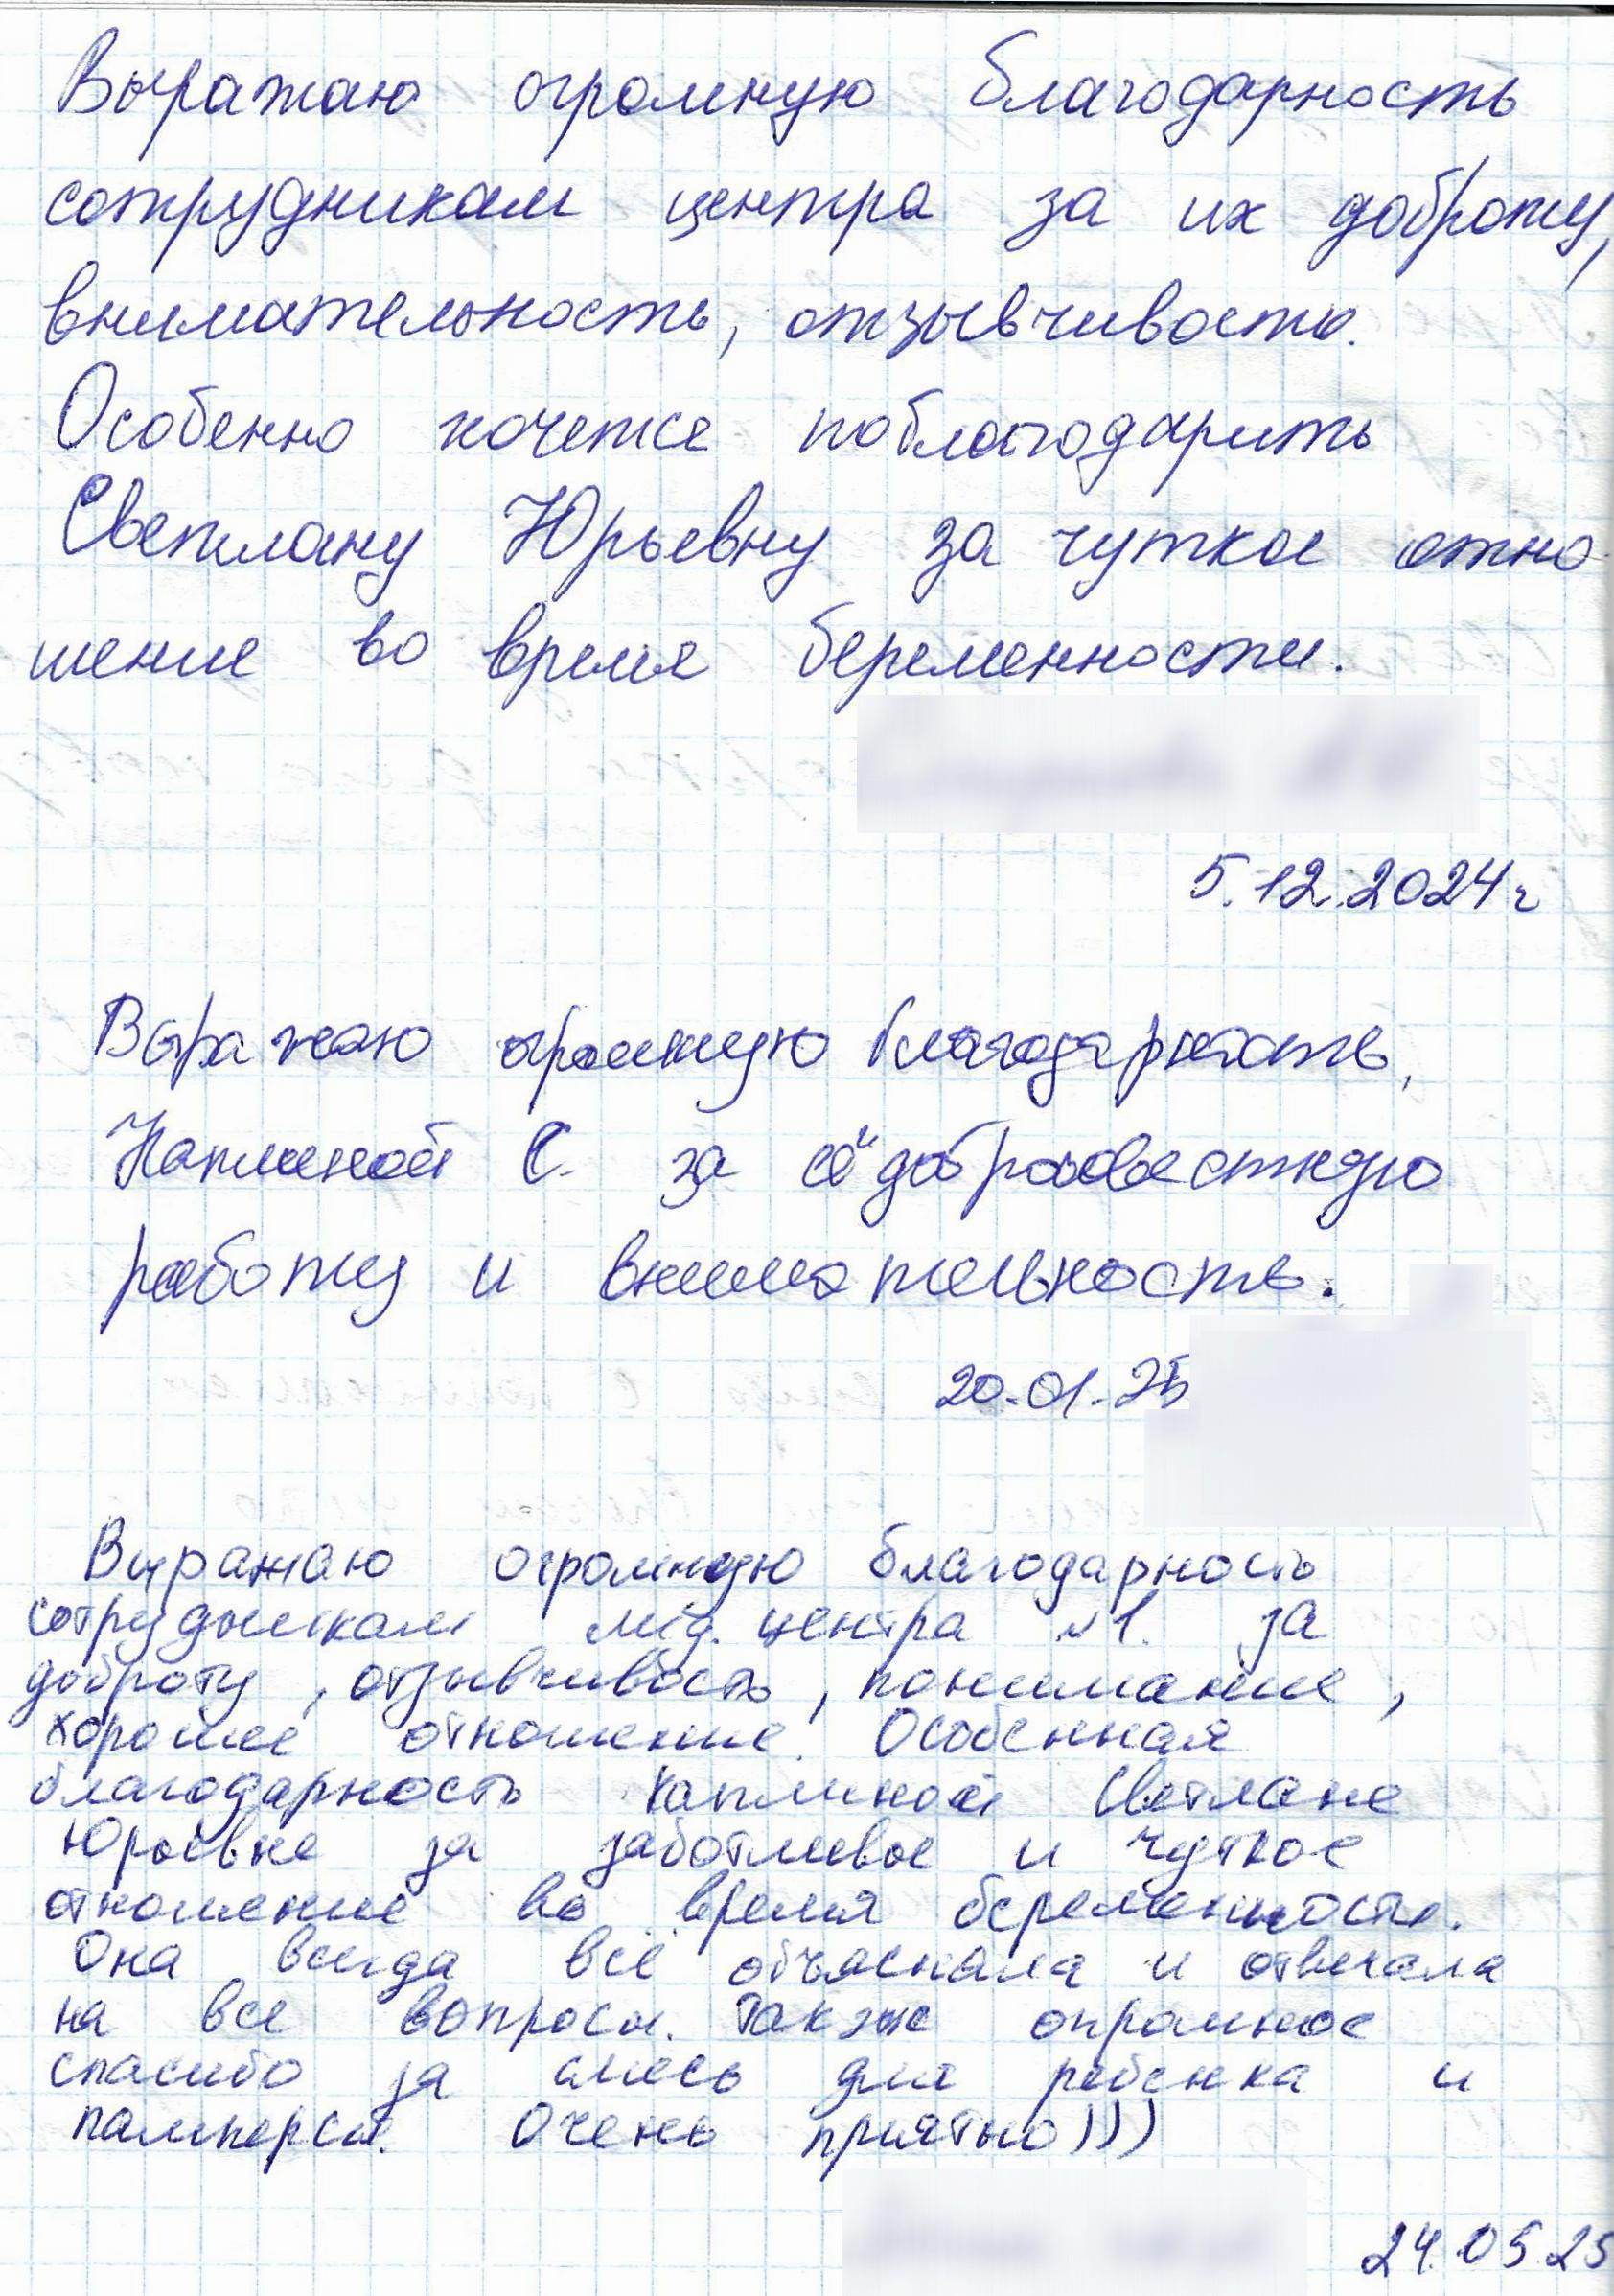 Выражаю огромную благодарность
сотрудникам центра за их доброту,
внимательность, отзывчивость.
Особенно хочется поблагодарить
Светлану Юрьевну за чуткое отно-
шение во время беременности.
5.12.2024г
Выражаю огромную благодарность,
Каплиной С. за её добросовестную
работу и внимательность.
20.01.25
Выражаю огромную благодарность
сотрудникам мед. центра №1. за
доброту, отзывчивость, понимание,
хорошее отношение. Особенная
благодарность Каплиной Светлане
Юрьевне за заботливое и чуткое
отношение во время беременности.
Она всегда всё объясняла и отвечала
на все вопросы. Также огромное
спасибо за смесь для ребенка и
памперсы. Очень приятно)))
24.05.25